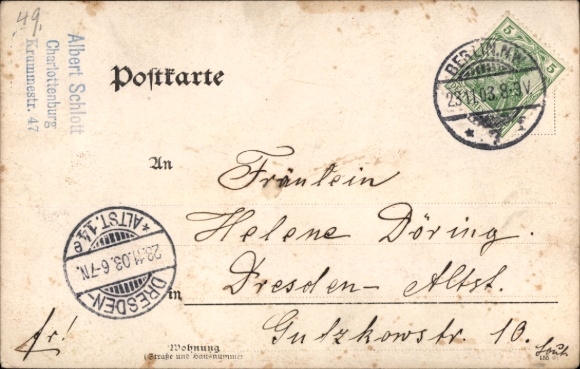 49.
Albert Schlott
Charlottenburg
Krummestr. 47
Postkarte
5
5
BERLIN.N.W.
23.11.03.8-9V.
* 7
An
Fräulein
Helene Döring.
Dresden-Altst.
in
Gutzkowstr. 10.
DRESDEN-
*ALTST.14e
23.11.03.6-7N.
fr!
Wohnung
(Straße und Hausnummer